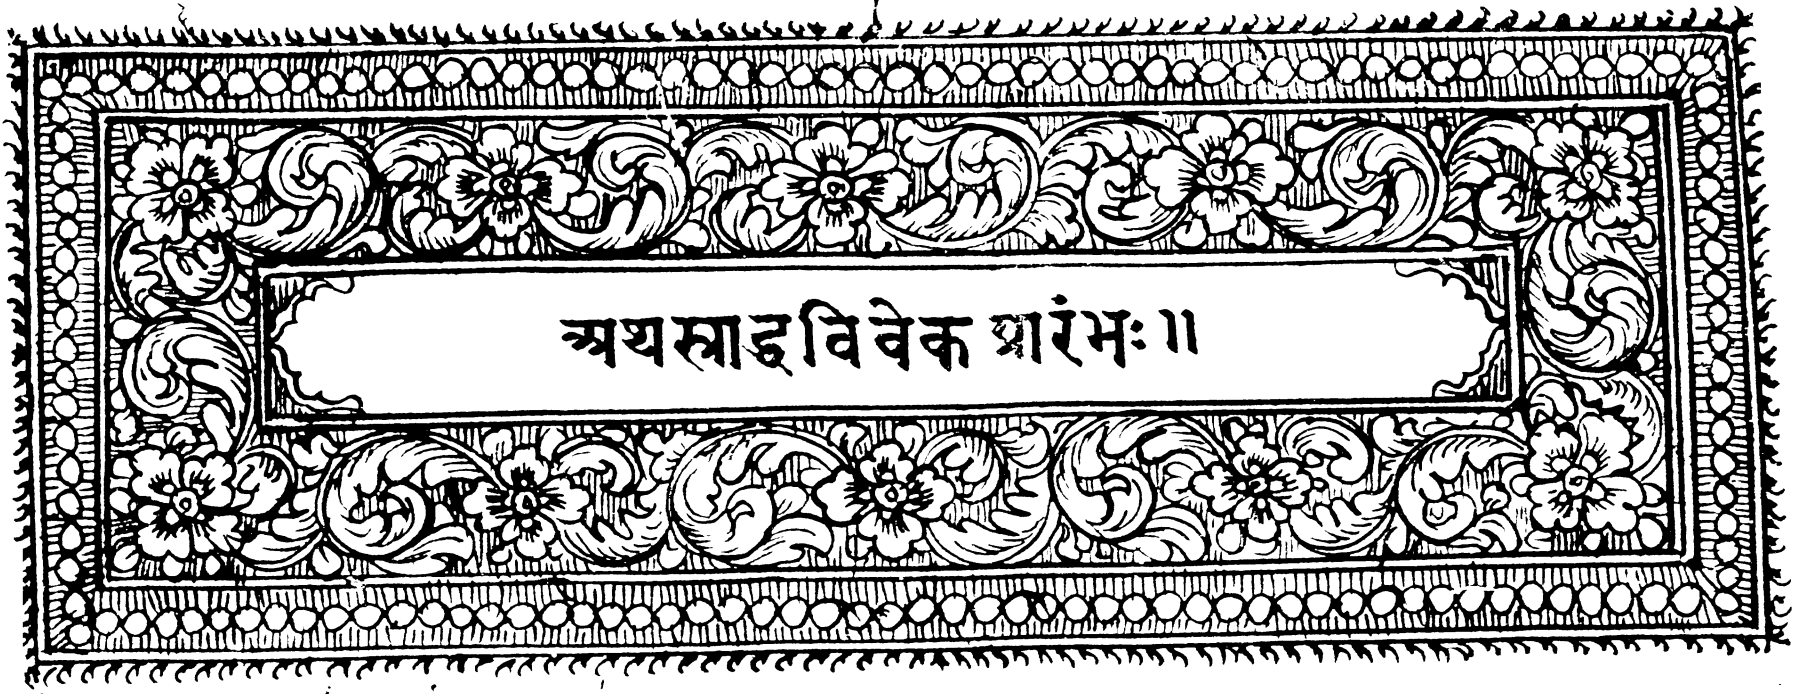 अथश्राद्धविवेक प्रारंभः॥